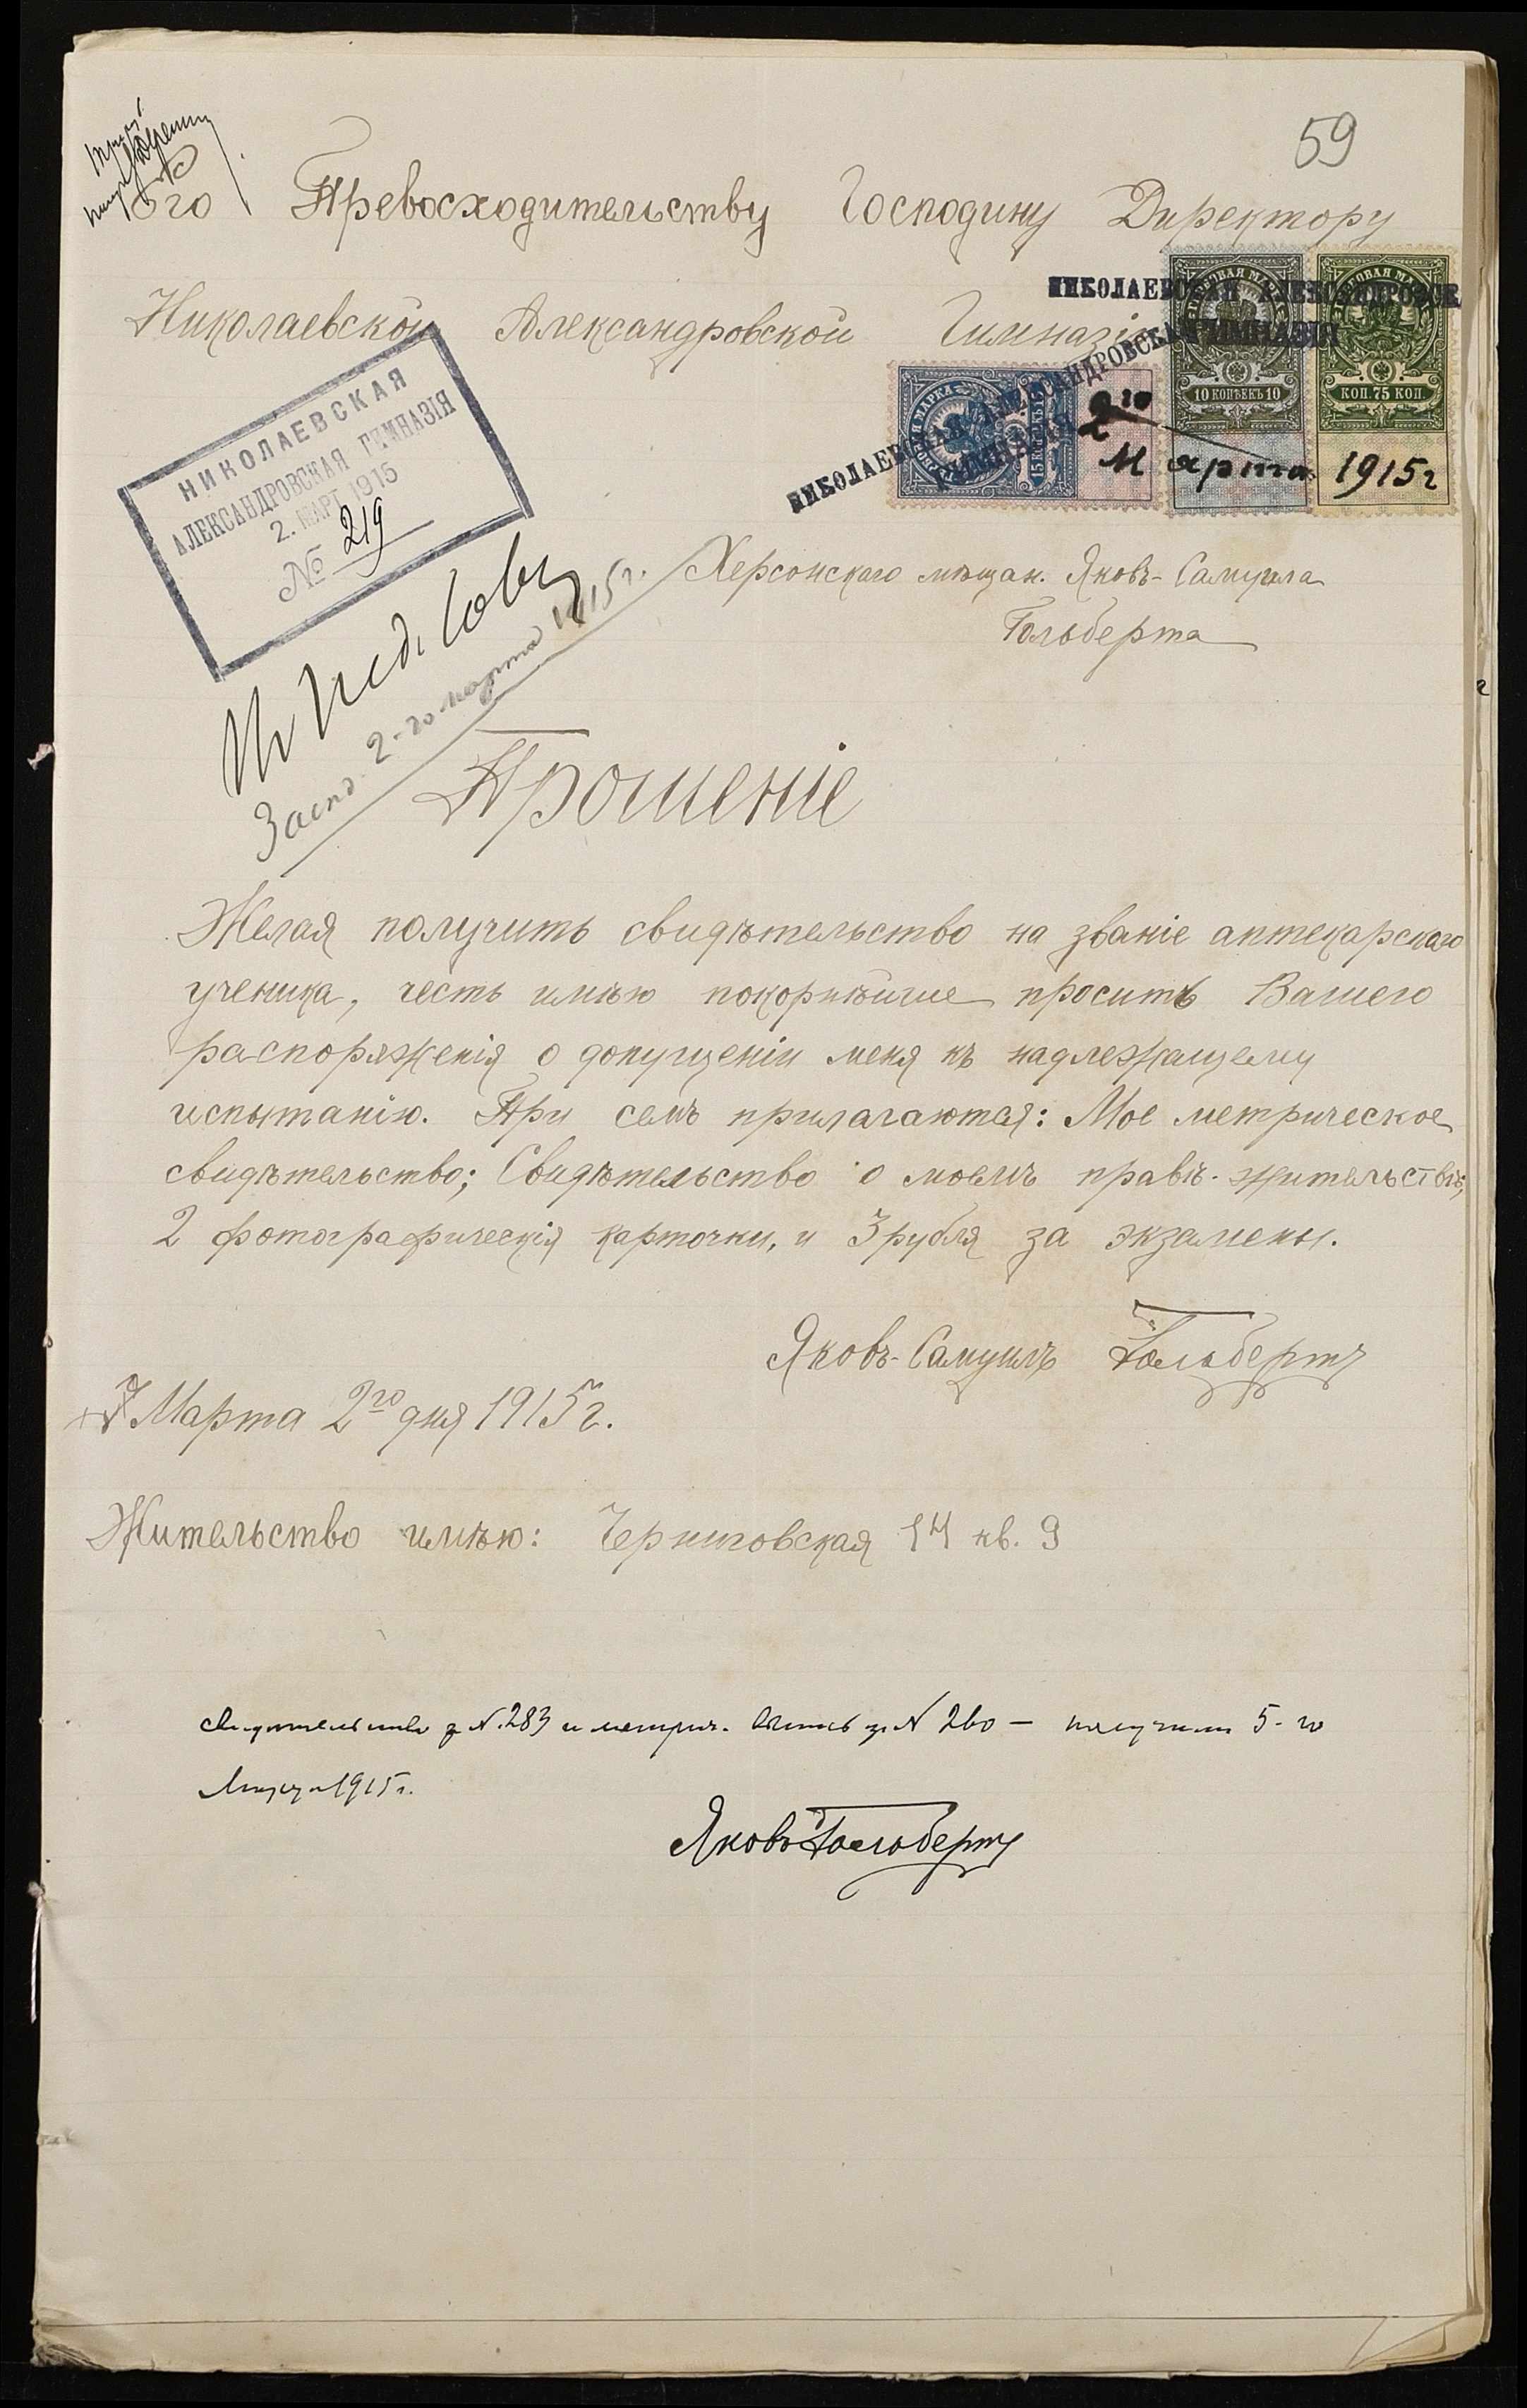 59
Его Превосходительству Господину Директору
Николаевской Александровской Гимназіи
НИКОЛАЕВСКАЯ АЛЕКСАНДРОВСКАЯ
ГИМНАЗІЯ
10 КОПѢЕКЪ 10
КОП. 75 КОП.
НИКОЛАЕВСКАЯ АЛЕКСАНДРОВСКАЯ
ГИМНАЗІЯ
2го Марта 1915г
НИКОЛАЕВСКАЯ
АЛЕКСАНДРОВСКАЯ ГИМНАЗІЯ
2. МАРТ 1915
№ 219
Въ Пед. Совѣ
Засѣд. 2-го марта 1915г.
Херсонскаго мѣщан. Яковъ-Самуила
Гольберта
Прошеніе
Желая получить свидѣтельство на званіе аптекарскаго
ученика, честь имѣю покорнѣйше просить Вашего
распоряженія о допущеніи меня къ надлежащему
испытанію. При семъ прилагаются: Мое метрическое
свидѣтельство; Свидѣтельство о моемъ правѣ-жительствѣ;
2 фотографическія карточки, и 3 рубля за экзамены.
Яковъ-Самуилъ Гольбертъ
Марта 2го дня 1915г.
Жительство имѣю: Черниговская 14 кв. 9
Свидѣтельство за N. 283 и метрич. выпись за N 260 — получилъ 5-го
Марта 1915г.
Яковъ Гольбертъ